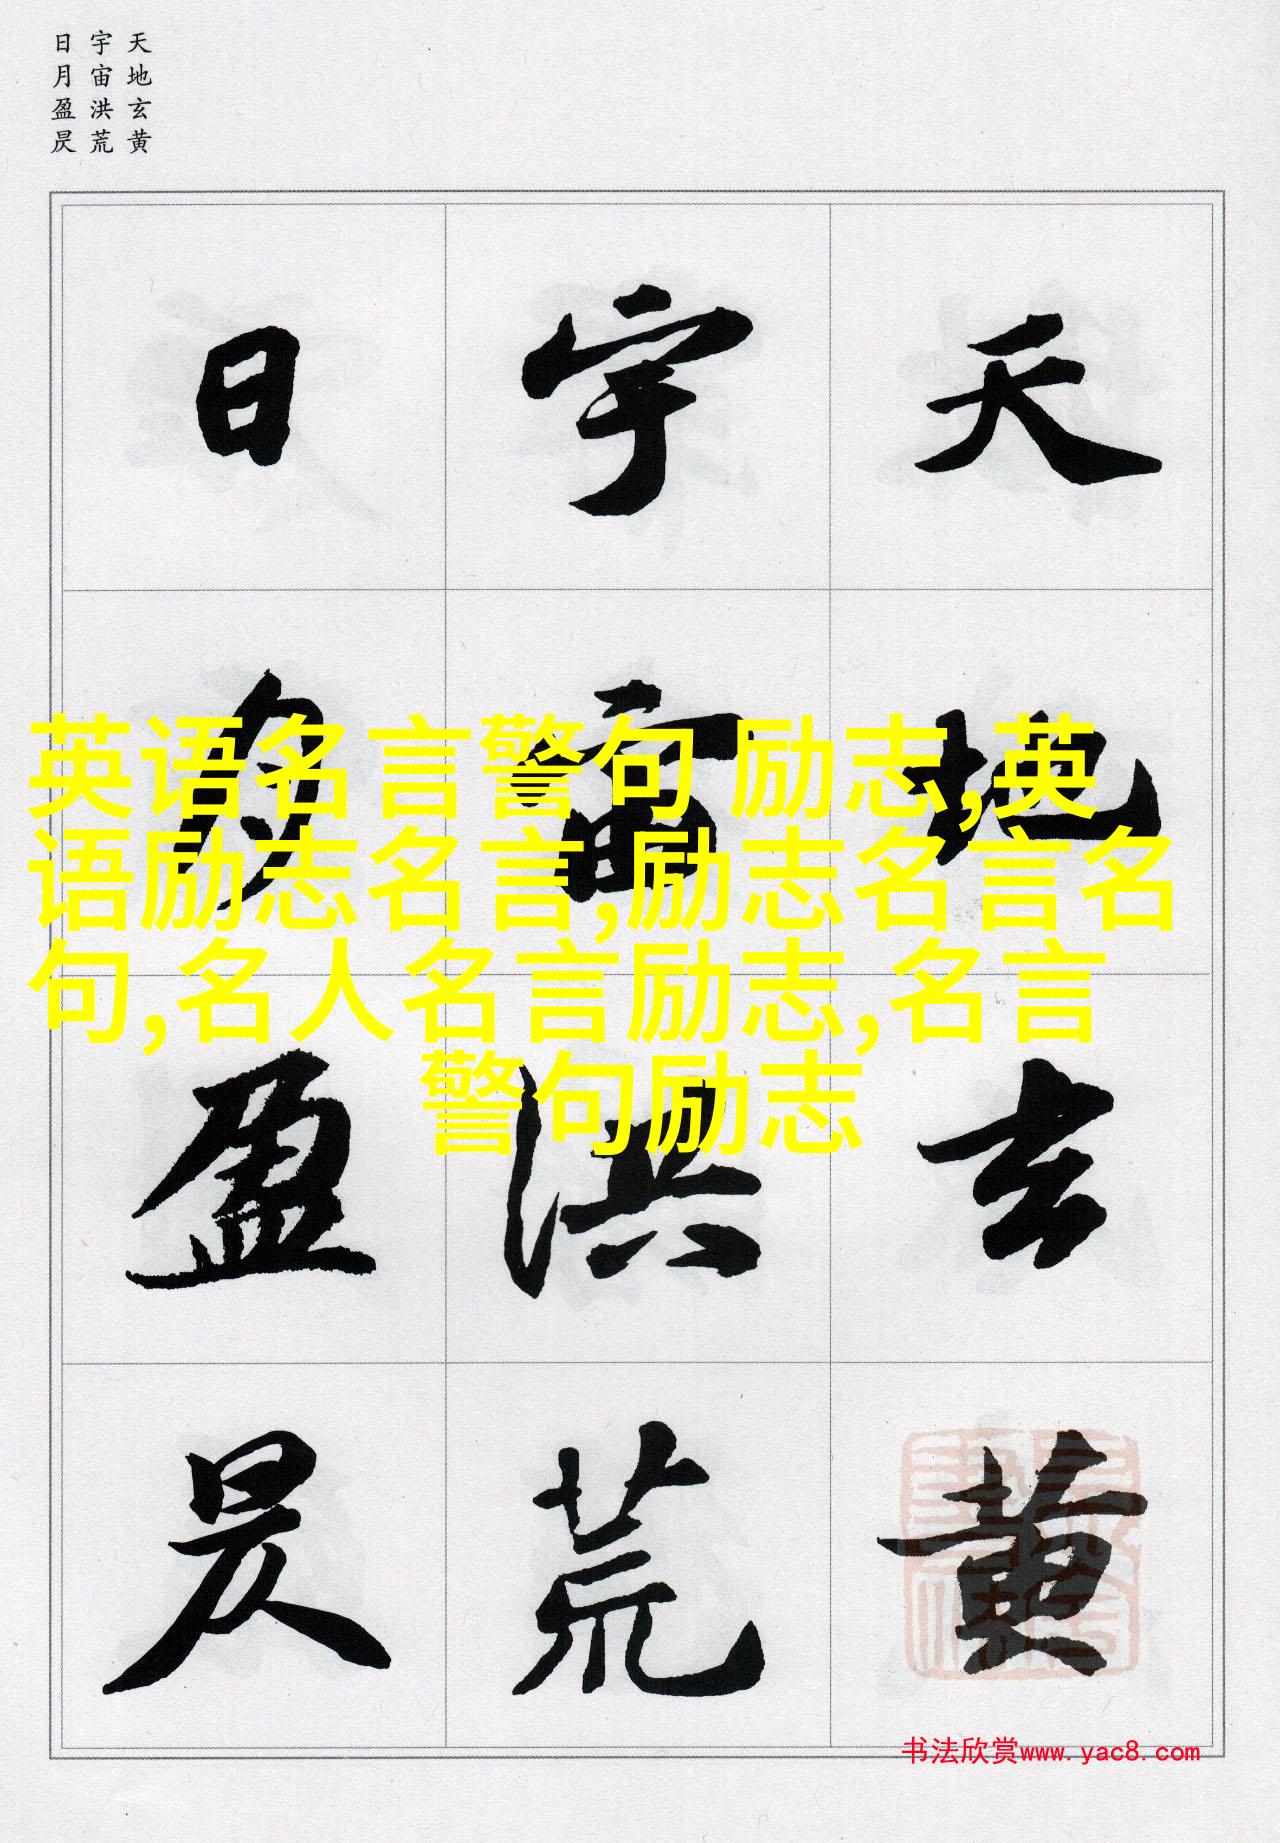 天地玄黄
宇宙洪荒
日月盈昃
天地玄黄
宇宙洪荒
日月盈昃
英语名言警句 励志,英
语励志名言,励志名言名
句,名人名言励志,名言
警句励志
书法欣赏www.yac8.com